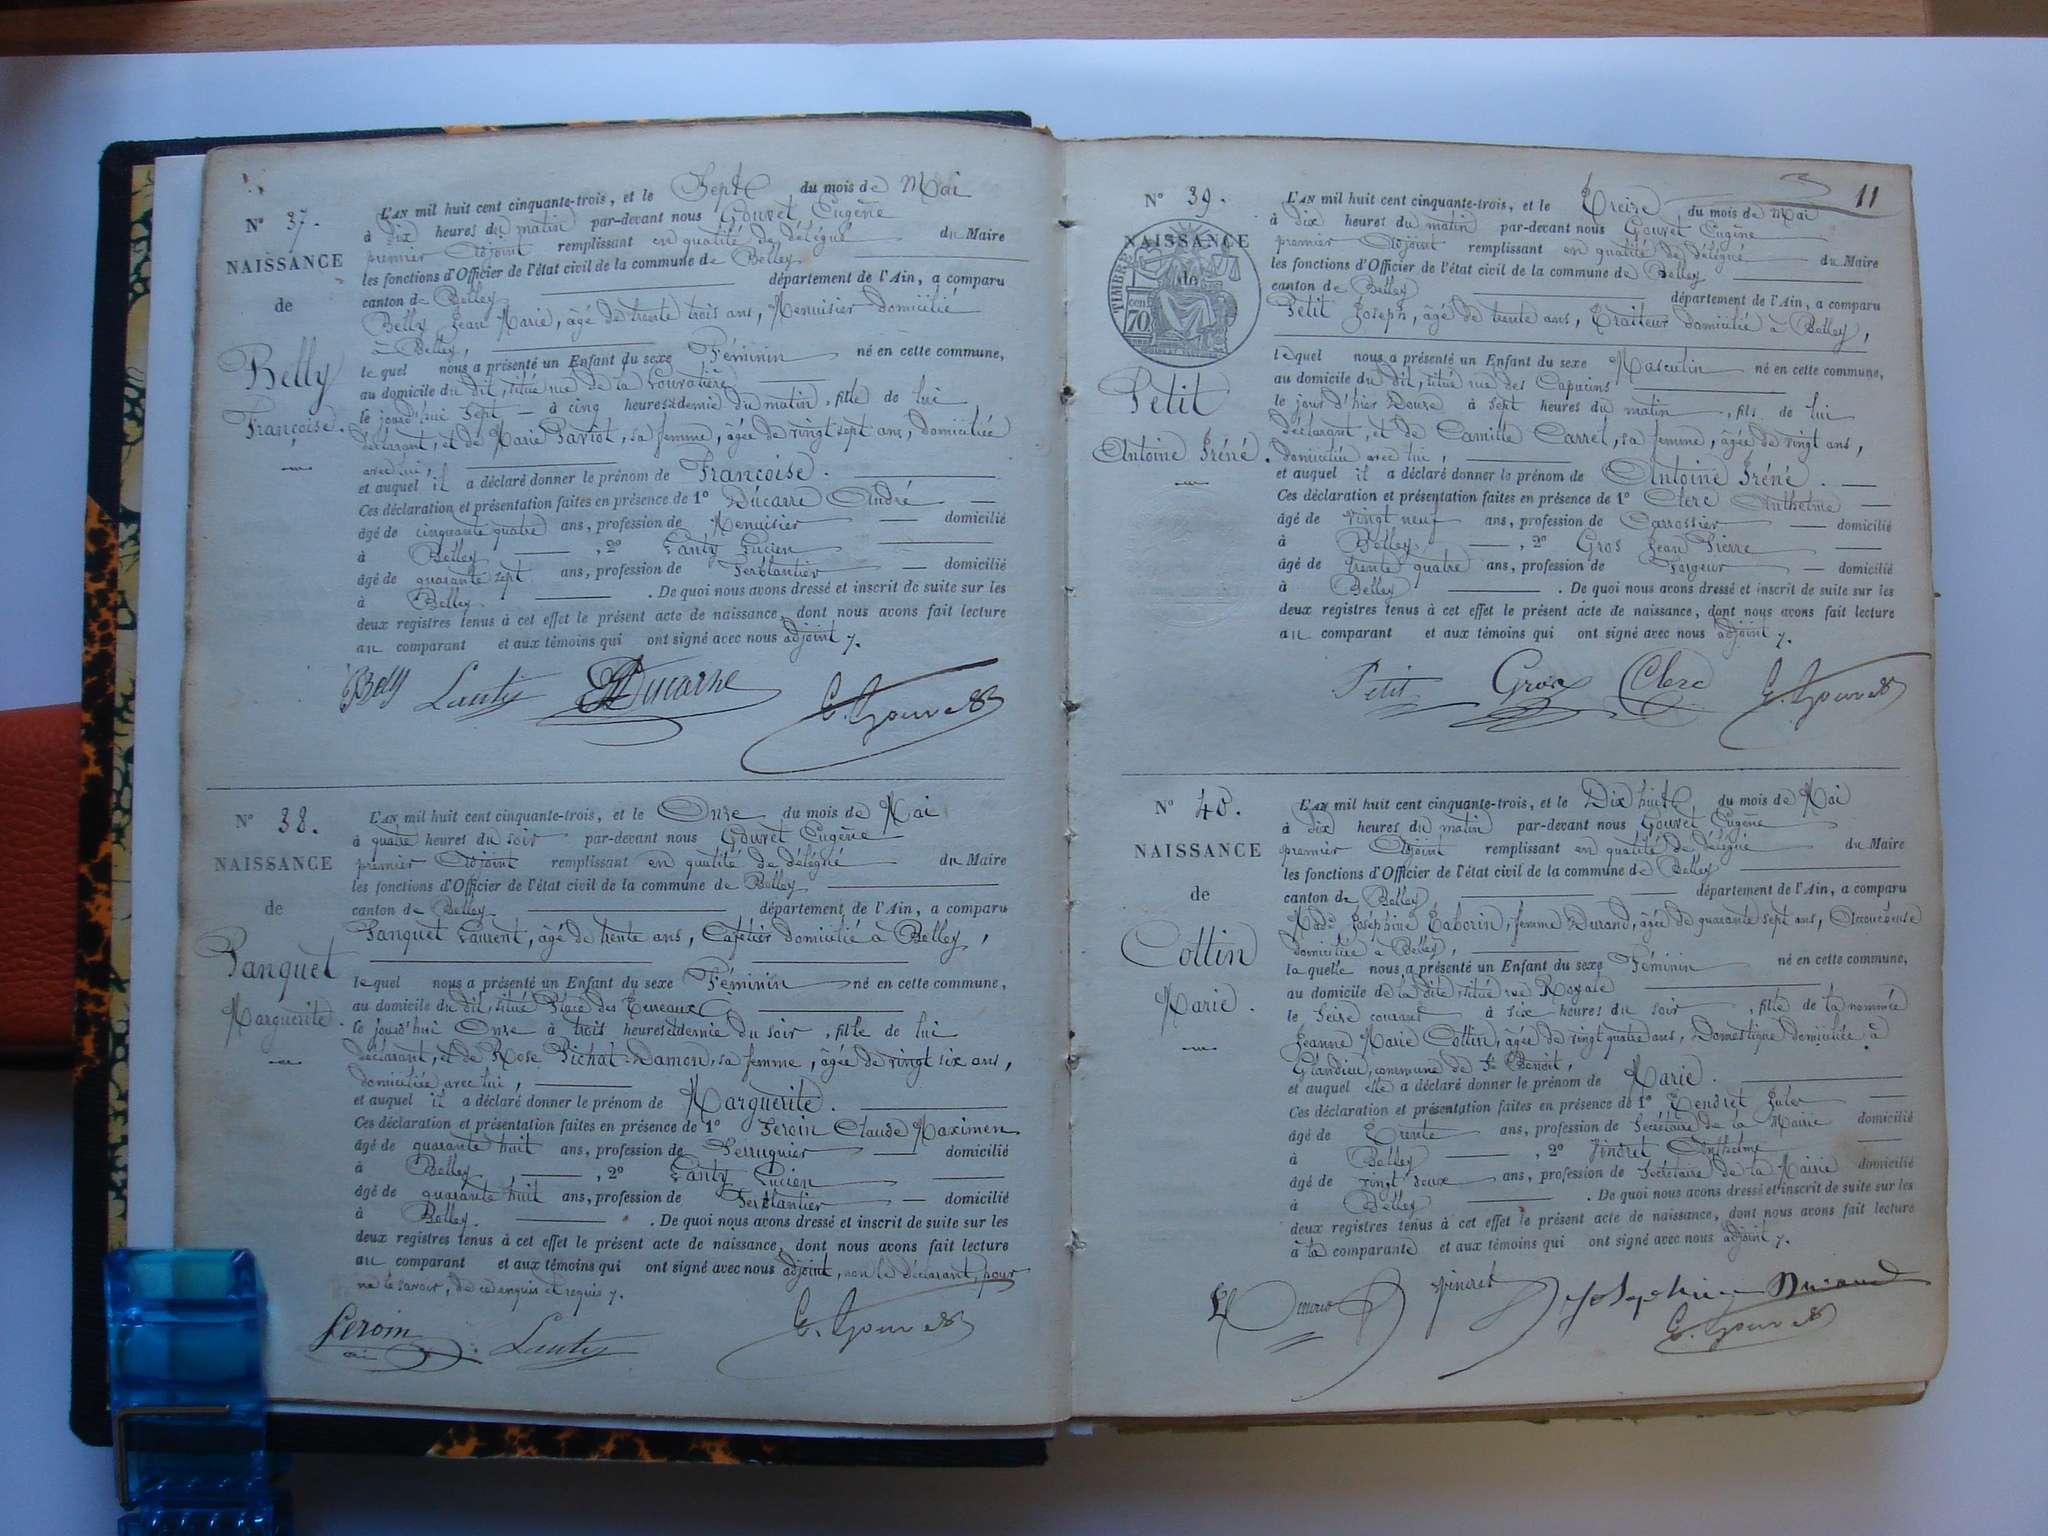 N° 37.
NAISSANCE
de
Belly
Françoise.
L'AN mil huit cent cinquante-trois, et le Sept du mois de Mai
à dix heures du matin par-devant nous Gouvet Eugène
premier Adjoint remplissant en qualité de délégué du Maire
les fonctions d'Officier de l'état civil de la commune de Belley
canton de Belley département de l'Ain, a comparu
Belly Jean Marie, âgé de trente trois ans, Menuisier domicilié
à Belley,
le quel nous a présenté un Enfant du sexe Féminin né en cette commune,
au domicile du dit, situé rue de la
le jourd'hui Sept à cinq heures & demie du matin, fille de lui
déclarant, et de Marie Pariot, sa femme, âgée de vingt sept ans, domiciliée
avec lui,
et auquel il a déclaré donner le prénom de Françoise.
Ces déclaration et présentation faites en présence de 1° Ducarre André
âgé de cinquante quatre ans, profession de Menuisier domicilié
à Belley, 2° Lanty Lucien
âgé de quarante sept ans, profession de Ferblantier domicilié
à Belley. De quoi nous avons dressé et inscrit de suite sur les
deux registres tenus à cet effet le présent acte de naissance, dont nous avons fait lecture
au comparant et aux témoins qui ont signé avec nous adjoint.
Belly Lanty Ducarre E. Gouvet
N° 38.
NAISSANCE
de
Panquet
Marguerite.
L'AN mil huit cent cinquante-trois, et le Onze du mois de Mai
à quatre heures du soir par-devant nous Gouvet Eugène
premier Adjoint remplissant en qualité de délégué du Maire
les fonctions d'Officier de l'état civil de la commune de Belley
canton de Belley département de l'Ain, a comparu
Panquet Laurent, âgé de trente ans, Cafetier domicilié à Belley,
le quel nous a présenté un Enfant du sexe Féminin né en cette commune,
au domicile du dit, situé Place des Terreaux
le jourd'hui Onze à trois heures & demie du soir, fille de lui
déclarant, et de Rose Pichat-Damon, sa femme, âgée de vingt six ans,
domiciliée avec lui,
et auquel il a déclaré donner le prénom de Marguerite.
Ces déclaration et présentation faites en présence de 1° Feroin Claude Maximen
âgé de quarante huit ans, profession de Perruquier domicilié
à Belley, 2° Lanty Lucien
âgé de quarante huit ans, profession de Ferblantier domicilié
à Belley. De quoi nous avons dressé et inscrit de suite sur les
deux registres tenus à cet effet le présent acte de naissance, dont nous avons fait lecture
au comparant et aux témoins qui ont signé avec nous adjoint, non le déclarant, pour
ne le savoir, de ce enquis et requis.
Feroin Lanty E. Gouvet
11
N° 39.
NAISSANCE
de
TIMBRE
70
Petit
Antoine Iréné.
L'AN mil huit cent cinquante-trois, et le Treize du mois de Mai
à dix heures du matin par-devant nous Gouvet Eugène
premier Adjoint remplissant en qualité de délégué du Maire
les fonctions d'Officier de l'état civil de la commune de Belley
canton de Belley département de l'Ain, a comparu
Petit Joseph, âgé de trente ans, Traiteur domicilié à Belley,
le quel nous a présenté un Enfant du sexe Masculin né en cette commune,
au domicile du dit, situé rue des Capucins
le jour d'hier Douze à sept heures du matin, fils de lui
déclarant, et de Camille Carrel, sa femme, âgée de vingt ans,
domiciliée avec lui,
et auquel il a déclaré donner le prénom de Antoine Iréné.
Ces déclaration et présentation faites en présence de 1° Clerc Anthelme
âgé de vingt neuf ans, profession de Carrossier domicilié
à Belley, 2° Gros Jean Pierre
âgé de trente quatre ans, profession de Forgeur domicilié
à Belley. De quoi nous avons dressé et inscrit de suite sur les
deux registres tenus à cet effet le présent acte de naissance, dont nous avons fait lecture
au comparant et aux témoins qui ont signé avec nous adjoint.
Petit Gros Clerc E. Gouvet
N° 40.
NAISSANCE
de
Cottin
Marie.
L'AN mil huit cent cinquante-trois, et le Dix huit du mois de Mai
à dix heures du matin par-devant nous Gouvet Eugène
premier Adjoint remplissant en qualité de délégué du Maire
les fonctions d'Officier de l'état civil de la commune de Belley
canton de Belley département de l'Ain, a comparu
Made Joséphine Taborin, femme Durand, âgée de quarante sept ans, Accoucheuse
domiciliée à Belley,
la quelle nous a présenté un Enfant du sexe Féminin né en cette commune,
au domicile de la dite, situé rue Royale
le Seize courant à six heures du soir, fille de la nommée
Jeanne Marie Cottin, âgée de vingt quatre ans, Domestique domiciliée à
Glandieu, commune de St Benoit,
et auquel elle a déclaré donner le prénom de Marie.
Ces déclaration et présentation faites en présence de 1° Tendret Jules
âgé de Trente ans, profession de Secrétaire de la Mairie domicilié
à Belley, 2° Vindret Anthelme
âgé de vingt deux ans, profession de Secrétaire de la Mairie domicilié
à Belley. De quoi nous avons dressé et inscrit de suite sur les
deux registres tenus à cet effet le présent acte de naissance, dont nous avons fait lecture
à la comparante et aux témoins qui ont signé avec nous adjoint.
Vindret Josephine Durand
E. Gouvet